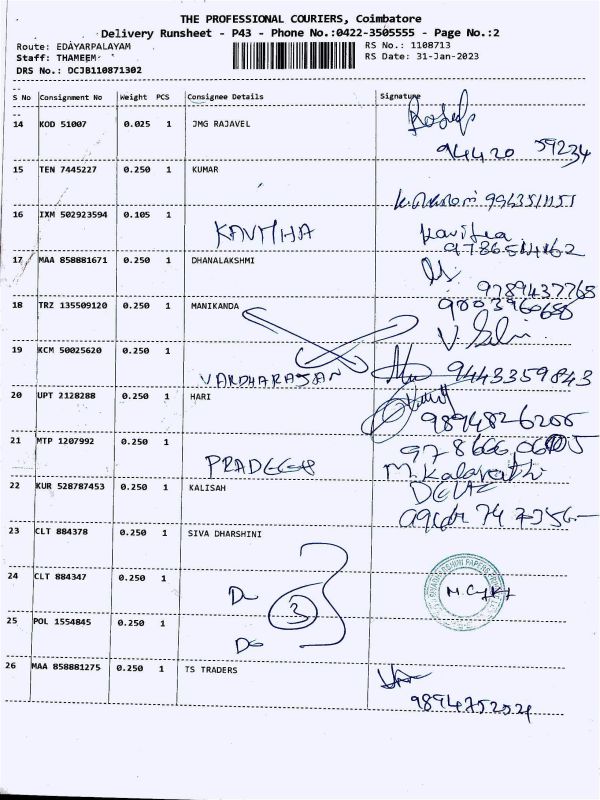 THE PROFESSIONAL COURIERS, Coimbatore
Delivery Runsheet - P43 - Phone No.:0422-3505555 - Page No.:2
Route: EDAYARPALAYAM RS No.: 1108713
Staff: THAMEEM RS Date: 31-Jan-2023
DRS No.: DCJB110871302
S No Consignment No Weight PCS Consignee Details Signature
14 KOD 51007 0.025 1 JMG RAJAVEL
94420 59234
15 TEN 7445227 0.250 1 KUMAR
16 IXM 502923594 0.105 1
KAVITHA Kavitha
17 MAA 858881671 0.250 1 DHANALAKSHMI
9789437768
18 TRZ 135509120 0.250 1 MANIKANDA
V. Selvi
19 KCM 50025620 0.250 1
VARDHARAJAN 9443359843
20 UPT 2128288 0.250 1 HARI
9894826200
21 MTP 1207992 0.250 1
PRADEESH M. Kalavathi
22 KUR 528787453 0.250 1 KALISAH
23 CLT 884378 0.250 1 SIVA DHARSHINI
24 CLT 884347 0.250 1
Do 3
25 POL 1554845 0.250 1
Do
26 MAA 858881275 0.250 1 TS TRADERS
9894752024